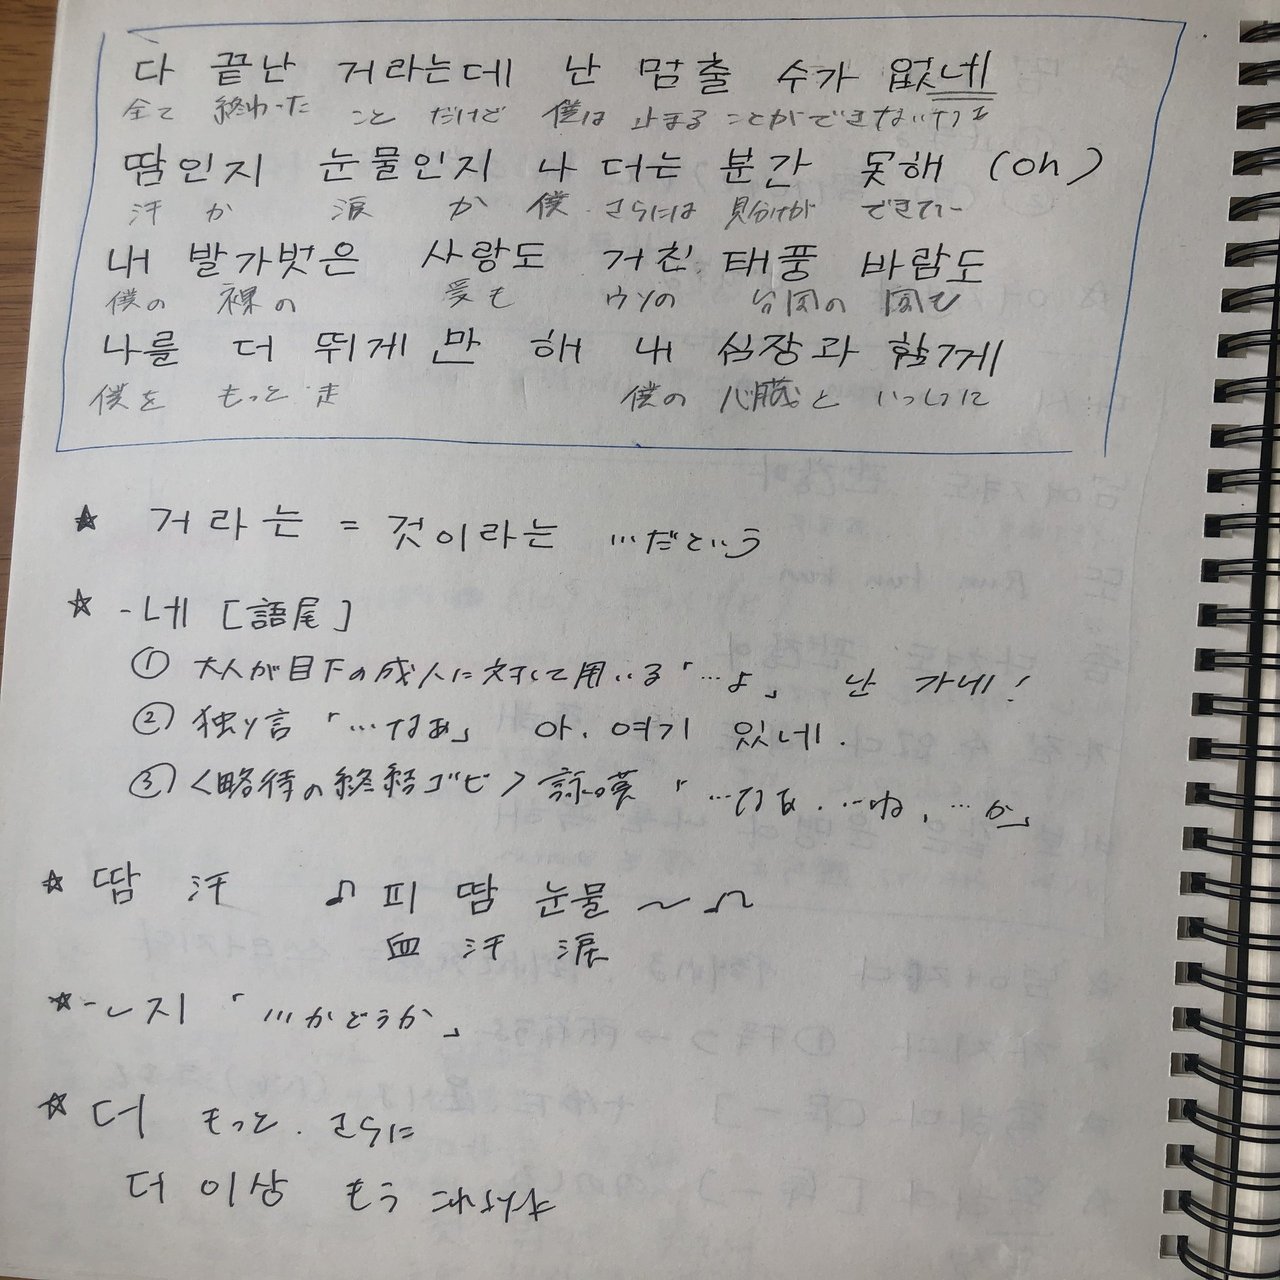 다 끝난 거라는데 난 멈출 수가 없네
全て 終わった こと だけど 僕は 止まる ことができないなぁ
땀인지 눈물인지 나 더는 분간 못해 (oh)
汗 か 涙 か 僕 さらには 見分けが できない
내 발가벗은 사랑도 거친 태풍 바람도
僕の 裸の 愛も ウソの 台風の 風も
나를 더 뛰게 만 해 내 심장과 함께
僕を もっと 走 僕の 心臓と いっしょに
☆ 거라는 = 것이라는 …だという
☆ -네 [語尾]
① 大人が目下の成人に対して用いる「…よ」 난 가네!
② 独り言「…なぁ」 아, 여기 있네.
③ <略待の終結ゴビ> 詠嘆「…なぁ, …ね, …か」
☆ 땀 汗 ♪ 피 땀 눈물 〜♪
血 汗 涙
☆ -ㄴ지 「…かどうか」
☆ 더 もっと. さらに
더 이상 もう これ以上